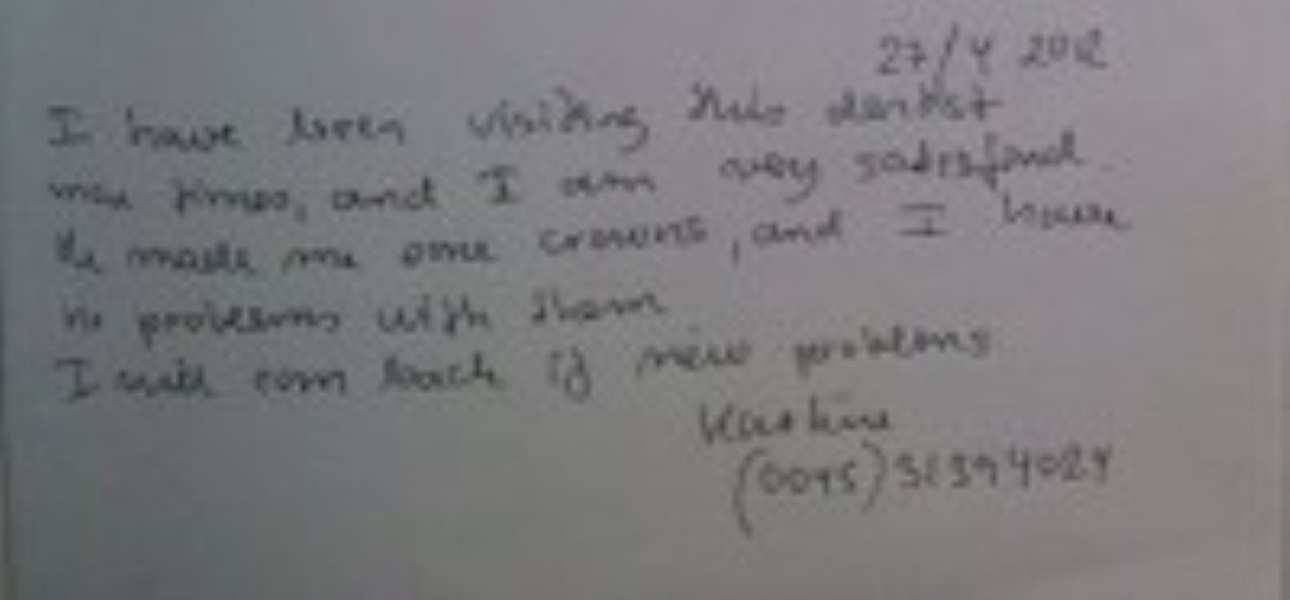 27/4 2012
I have been visiting this dentist
times, and I am very
He made me some crowns, and I have
no problems with them
I will com back if new problems
(0045)